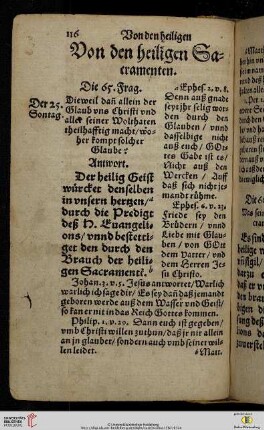 116 Von den heiligen
Von den heiligen Sa-
cramenten.
Die 65. Frag.
Der 25.
Sontag.
Dieweil dañ allein der
Glaub vns Christi vnd
aller seiner Wolthaten
theilhafftig macht/wo-
her kompt solcher
Glaube?
Antwort.
Der heilig Geist
würcket denselben
in vnsern hertzen/
durch die Predigt
deß H. Euangeli-
ons/vnnd bestetti-
get den durch den
Brauch der heili-
gen Sacrament.
Ephes. 2. v. 8.
Denn auß gnade
seyt jhr selig wor-
den durch den
Glauben/vnnd
dasselbige nicht
auß euch/Got-
tes Gabe ist es/
Nicht auß den
Wercken/Auff
daß sich nicht je-
mand rühme.
Ephes. 6. v. 23.
Friede sey den
Brüdern/vnnd
Liebe mit Glau-
ben/von GOtt
dem Vatter/vnd
dem Herren Je-
su Christo.
Johan. 3. v. 5. Jesus antwortet/Warlich
warlich ich sage dir/Es sey dañ daß jemandt
geboren werde auß dem Wasser vnd Geist/
so kan er nit in das Reich Gottes kommen.
Philip. 1. v. 29. Dann euch ist gegeben/
vmb Christi willen zuthun/daß jr nit allein
an jn glaubet/sondern auch vmb seinet wil-
len leidet.
Matt.